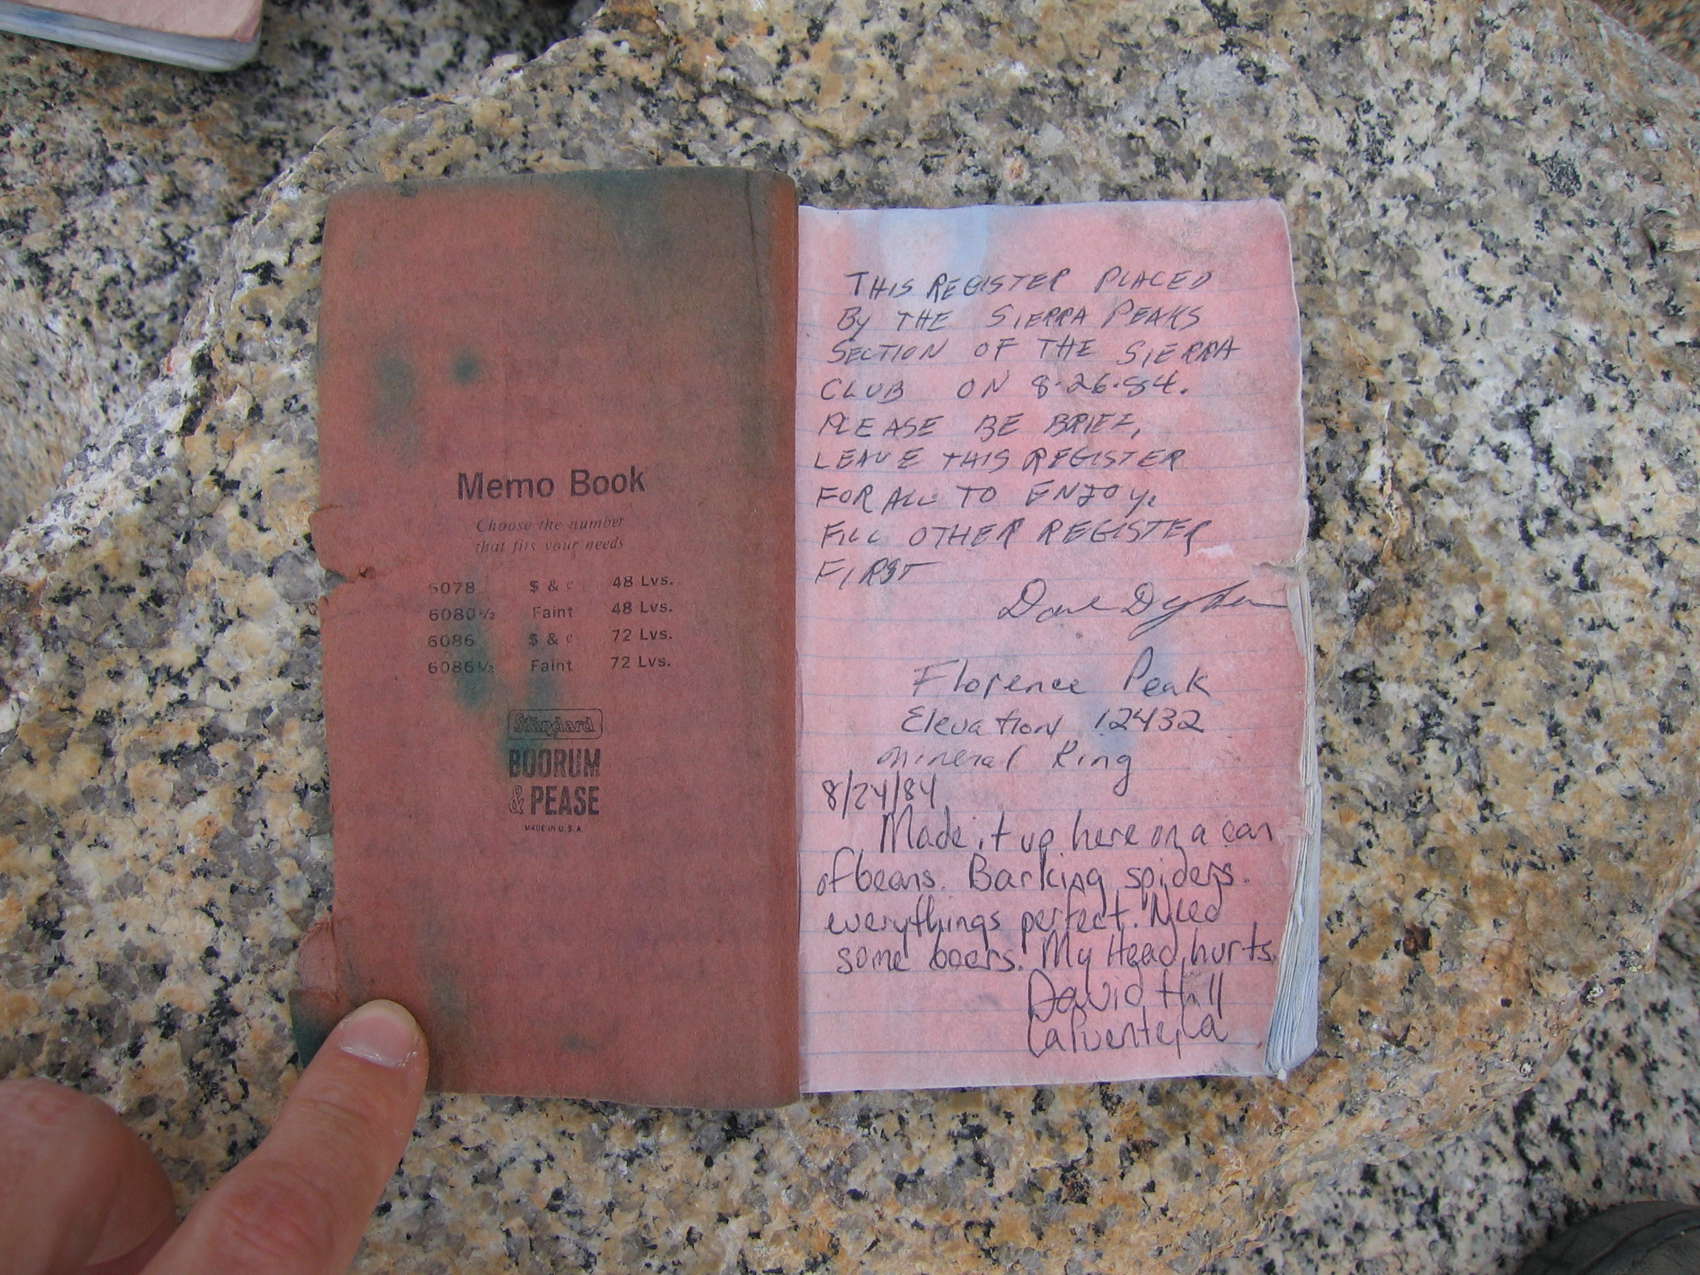 Memo Book
Choose the number
that fits your needs
6078 $ & c 48 Lvs.
6080½ Faint 48 Lvs.
6086 $ & c 72 Lvs.
6086½ Faint 72 Lvs.
Standard
BOORUM
& PEASE
MADE IN U.S.A.
THIS REGISTER PLACED
By THE SIERRA PEAKS
SECTION OF THE SIERRA
CLUB ON 8·26·84.
PLEASE BE BRIEF,
LEAVE THIS REGISTER
FOR ALL TO ENJOY.
FILL OTHER REGISTER
FIRST
Dave
Florence Peak
Elevation 12432
Mineral King
8/24/84
Made it up here on a can
of beans. Barking spiders.
everythings perfect. Need
some beers. My Head hurts.
David Hall
La Puente, Ca